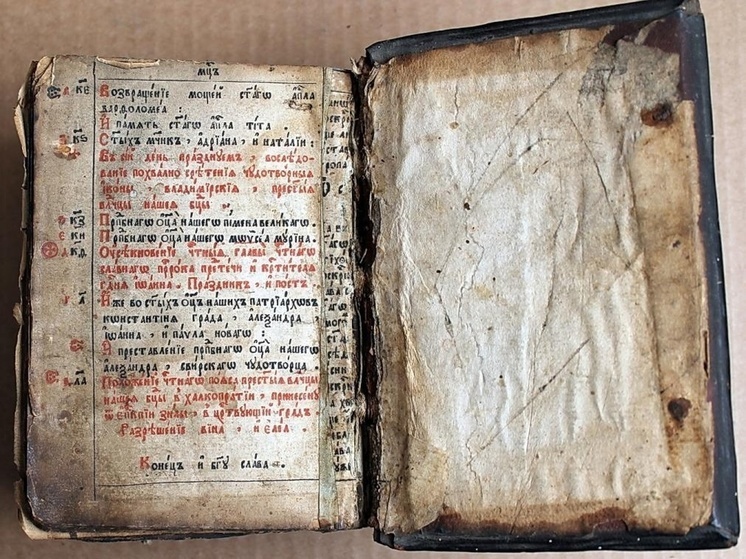 мцъ
в҃ кє Возвращенїе мощей ст҃агѡ ап҃ла
варѳоломеа :
И память ст҃агѡ ап҃ла тіта
кѕ Ст҃ыхъ мч҃нкъ , адрїана , и наталїи :
Въ сїй день празднуемъ , вослѣдо-
ванїе похвално срѣтенїѧ чудотворныѧ
їконы , владимїрскїѧ , прест҃ыѧ
влч҃цы нашеѧ бц҃ы .
кз Прпⷣбнагѡ оц҃а нашегѡ пімена великагѡ .
є ки Прпⷣбнагѡ оц҃а нашегѡ мѡѵсеа мурїна .
кѳ Оусѣкновенїе чтⷭныѧ главы чтⷭнагѡ
славнагѡ прⷪрока прⷣтечи и крⷭтителѧ
гдⷭнѧ іѡанна . Праздникъ , и постъ .
л Иже во ст҃ыхъ оц҃ъ нашихъ патрїарховъ
кѡнстантїна града , алеѯандра
іѡанна , и паѵла новагѡ :
И преставленїе прпⷣбнагѡ оц҃а нашегѡ
алеѯандра , свирскагѡ чудотворца .
ла Положенїе чтⷭнагѡ поѧса прест҃ыѧ влч҃цы
нашеѧ бц҃ы в халкопратїи , принесену
ѿ епⷭкпїи зилы , в црⷭтвующїй градъ
Разрѣшенїе вина , и елеа .
Конецъ и бг҃у слава .